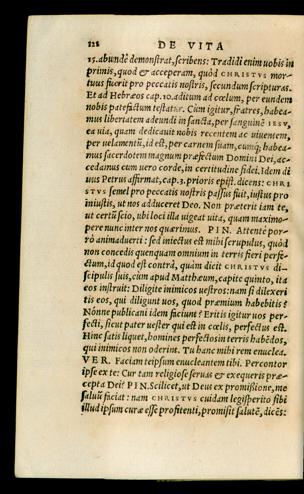 122 DE VITA
15. abundè demonstrat, scribens: Tradidi enim uobis in
primis, quod & acceperam, quòd CHRISTVS mor-
tuus fuerit pro peccatis nostris, secundum scripturas.
Et ad Hebræos cap. 10. aditum ad cœlum, per eundem
nobis patefactum testatur. Cum igitur, fratres, habea-
mus libertatem adeundi in sancta, per sanguinē IESV,
ea uia, quam dedicauit nobis recentem ac uiuentem,
per uelamentū, id est, per carnem suam, cumq́; habea-
mus sacerdotem magnum præfectum Domini Dei, ac-
cedamus cum uero corde, in certitudine fidei. Idem di-
uus Petrus affirmat, cap. 3. prioris epist. dicens: CHRI
STVS semel pro peccatis nostris passus fuit, iustus pro
iniustis, ut nos adduceret Deo. Non præterit iam te,
ut certū scio, ubi loci illa uigeat uita, quam maximo-
pere nunc inter nos quærimus. PIN. Attentè por-
rò animaduerti: sed iniectus est mihi scrupulus, quòd
non concedis quenquam omnium in terris fieri perfe-
ctum, id quod est contrà, quàm dicit CHRISTVS di-
scipulis suis, cùm apud Matthæum, capite quinto, ita
eos instruit: Diligite inimicos uestros: nam si dilexeri
tis eos, qui diligunt uos, quod præmium habebitis?
Nónne publicani idem faciunt? Eritis igitur uos per-
fecti, sicut pater uester qui est in cœlis, perfectus est.
Hinc satis liquet, homines perfectos in terris habēdos,
qui inimicos non oderint. Tu hanc mihi rem enuclea.
VER. Faciam teipsum enucleantem tibi. Percontor
ipse ex te: Cur tam religiose seruas & exequeris præ-
cepta Dei? PIN. Scilicet, ut Deus ex promissione, me
saluū faciat: nam CHRISTVS cuidam legisperito sibi
illud ipsum curæ esse profitenti, promisit salutē, dicēs: